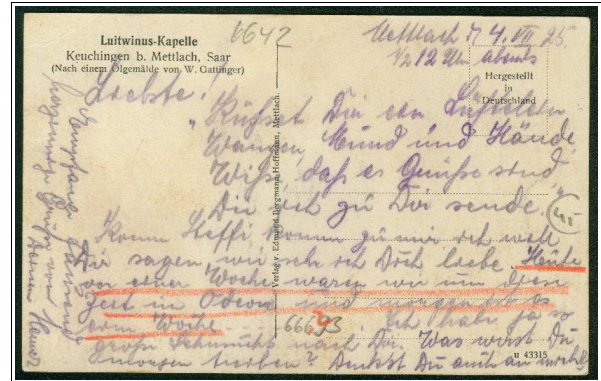 Luitwinus-Kapelle
Keuchingen b. Mettlach, Saar
(Nach einem Ölgemälde von W. Gattinger)
6642
Mettlach, 4. VII 25.
1/2 12 Uhr abends
Hergestellt
in
Deutschland
Liebste!
"Küsset Dir ein Lüftelein
Wangen, Mund und Hände,
Wisse, daß es Grüße sind,
Die ich zu Dir sende."
Komm Steffi komm zu mir ich will
Dir sagen, wie sehr ich Dich liebe. Heute
vor einer Woche waren wir um diese
Zeit im Odeon und morgen ist es
eine Woche. Ich habe ja so
große Sehnsucht nach Dir. Was wirst Du
morgen treiben? Denkst Du auch an mich?
Empfang tausend
Grüße von
Deinem
Verlag v. Edmund Bergmann-Hoffmann, Mettlach.
45
66643
u 43315